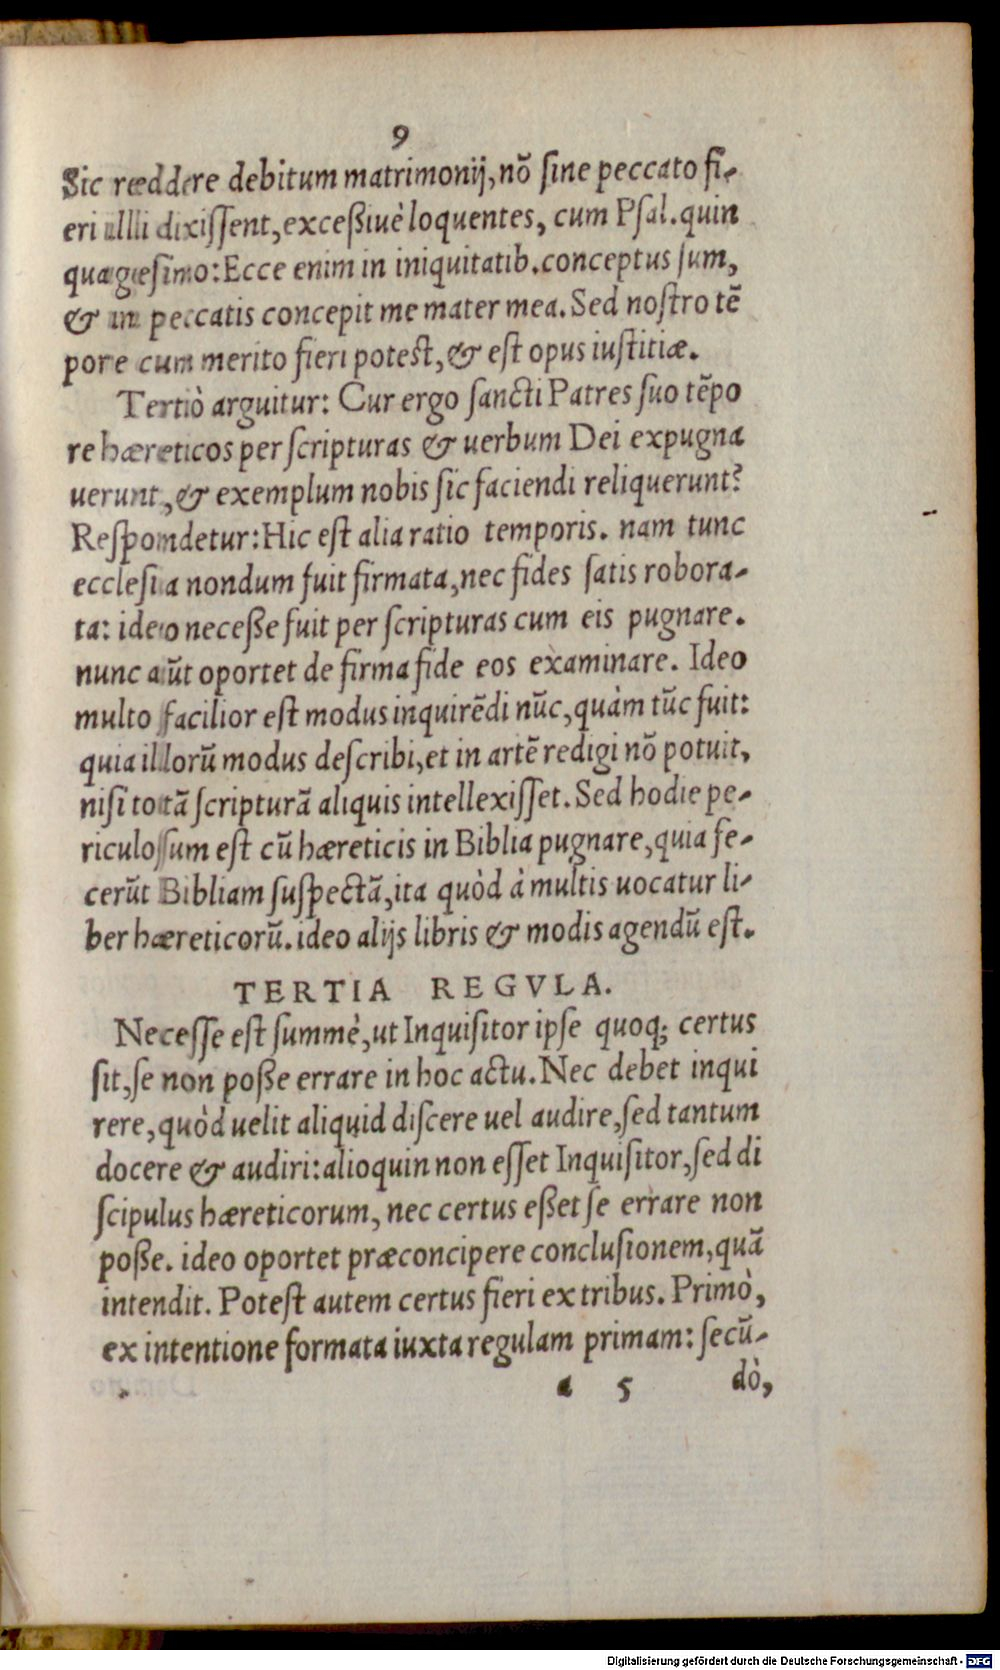 9
Sic reddere debitum matrimonij, nõ sine peccato fi-
eri illi dixissent, excessiuè loquentes, cum Psal. quin
quagesimo: Ecce enim in iniquitatib. conceptus sum,
& in peccatis concepit me mater mea. Sed nostro tẽ
pore cum merito fieri potest, & est opus iustitiæ.
Tertiò arguitur: Cur ergo sancti Patres suo tẽpo
re hæreticos per scripturas & uerbum Dei expugna
uerunt, & exemplum nobis sic faciendi reliquerunt?
Respondetur: Hic est alia ratio temporis. nam tunc
ecclesia nondum fuit firmata, nec fides satis robora-
ta: ideo necesse fuit per scripturas cum eis pugnare.
nunc aũt oportet de firma fide eos examinare. Ideo
multo facilior est modus inquirẽdi nũc, quàm tũc fuit:
quia illorũ modus describi, et in artẽ redigi nõ potuit,
nisi totã scripturã aliquis intellexisset. Sed hodie pe-
riculosum est cũ hæreticis in Biblia pugnare, quia fe-
cerũt Bibliam suspectã, ita quòd à multis uocatur li-
ber hæreticorũ. ideo alijs libris & modis agendũ est.
TERTIA REGVLA.
Necesse est summè, ut Inquisitor ipse quoq; certus
sit, se non posse errare in hoc actu. Nec debet inqui
rere, quòd uelit aliquid discere uel audire, sed tantum
docere & audiri: alioquin non esset Inquisitor, sed di
scipulus hæreticorum, nec certus esset se errare non
posse. ideo oportet præconcipere conclusionem, quã
intendit. Potest autem certus fieri ex tribus. Primò,
ex intentione formata iuxta regulam primam: secũ-
a 5 dò,
Digitalisierung gefördert durch die Deutsche Forschungsgemeinschaft - DFG